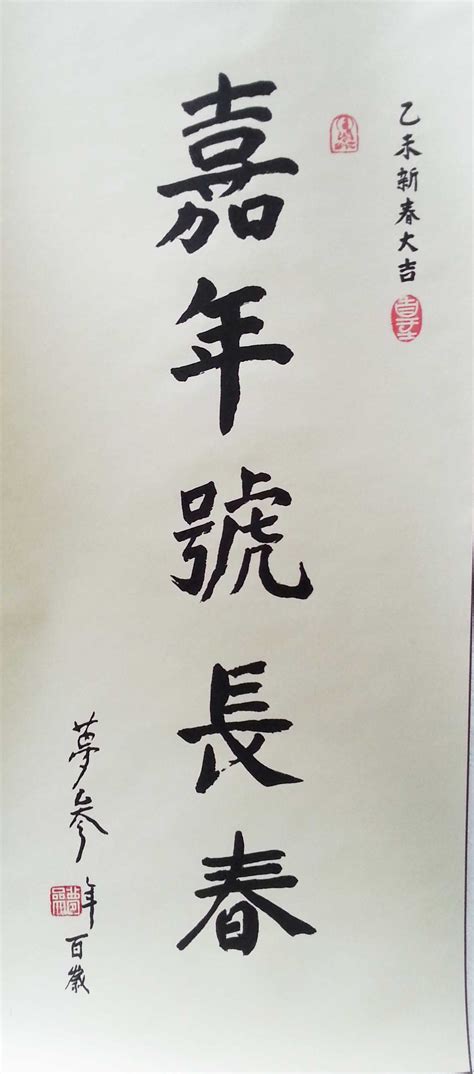 乙未新春大吉
嘉年號長春
夢參年百歲